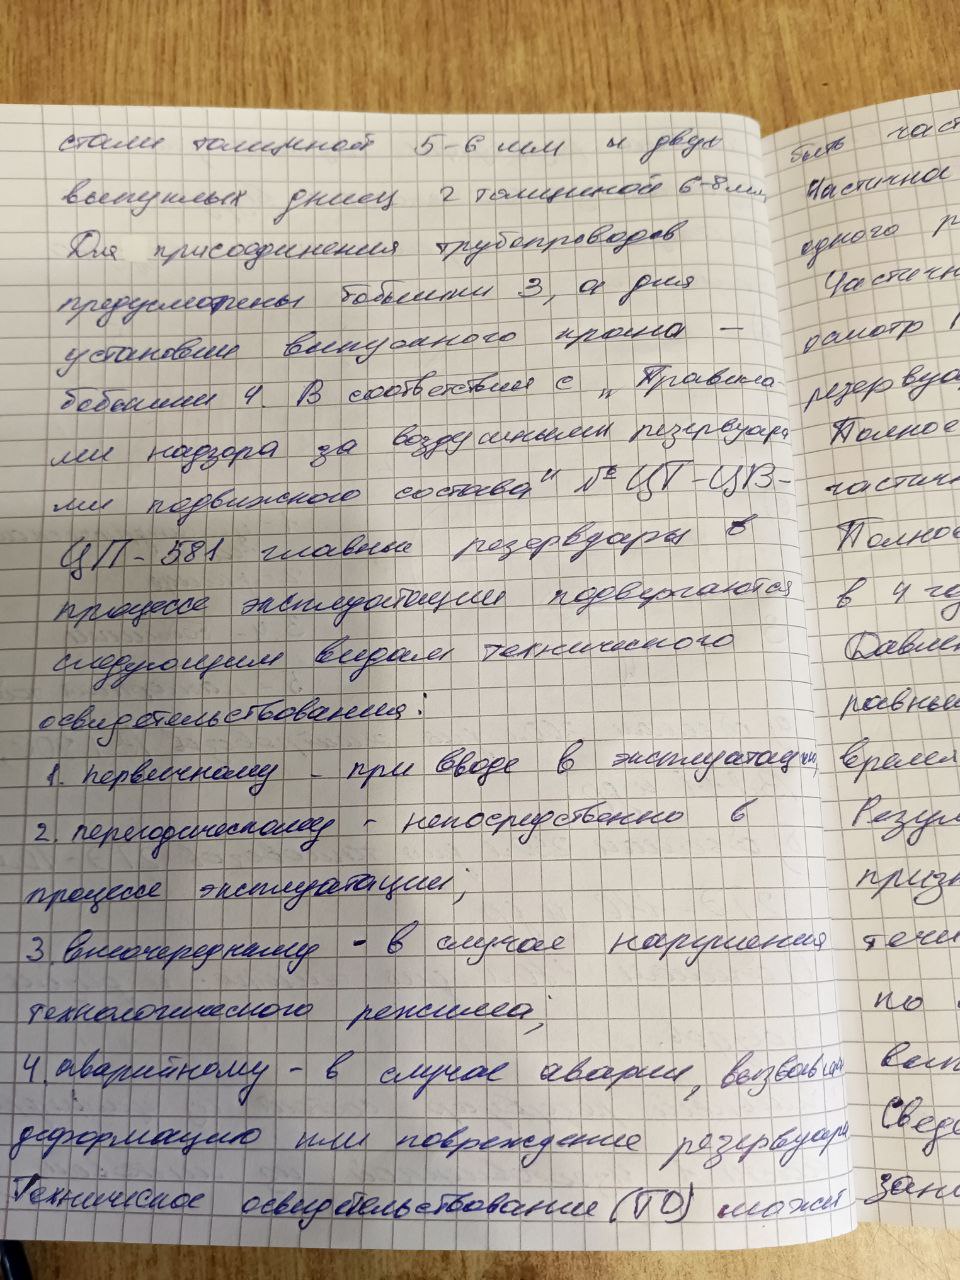 стали толщиной 5-6 мм и двух
выпуклых днищ 2 толщиной 6-8мм
Для присоединения трубопроводов
предусмотрены бобышки 3, а для
установки выпускного крана —
бобышки 4. В соответствии с „Правила
ми надзора за воздушными резервуара
ми подвижного состава" № ЦТ-ЦВ-
ЦП-581 главные резервуары в
процессе эксплуатации подвергаются
следующим видам технического
освидетельствования:
1. первичному - при вводе в эксплуатацию,
2. периодическому - непосредственно в
процессе эксплуатации;
3. внеочередному - в случае нарушения
технологического режима;
4. аварийному - в случае аварии, вызвавшей
деформацию или повреждение резервуара
Техническое освидетельствование (ТО) может
быть част
Частична
одного р
Частичн
осмотр
резервуа
Полное
частичн
Полное
в 4 го
Давлен
равным
время
Резул
призн
течи
по
вып
Сведе
зан